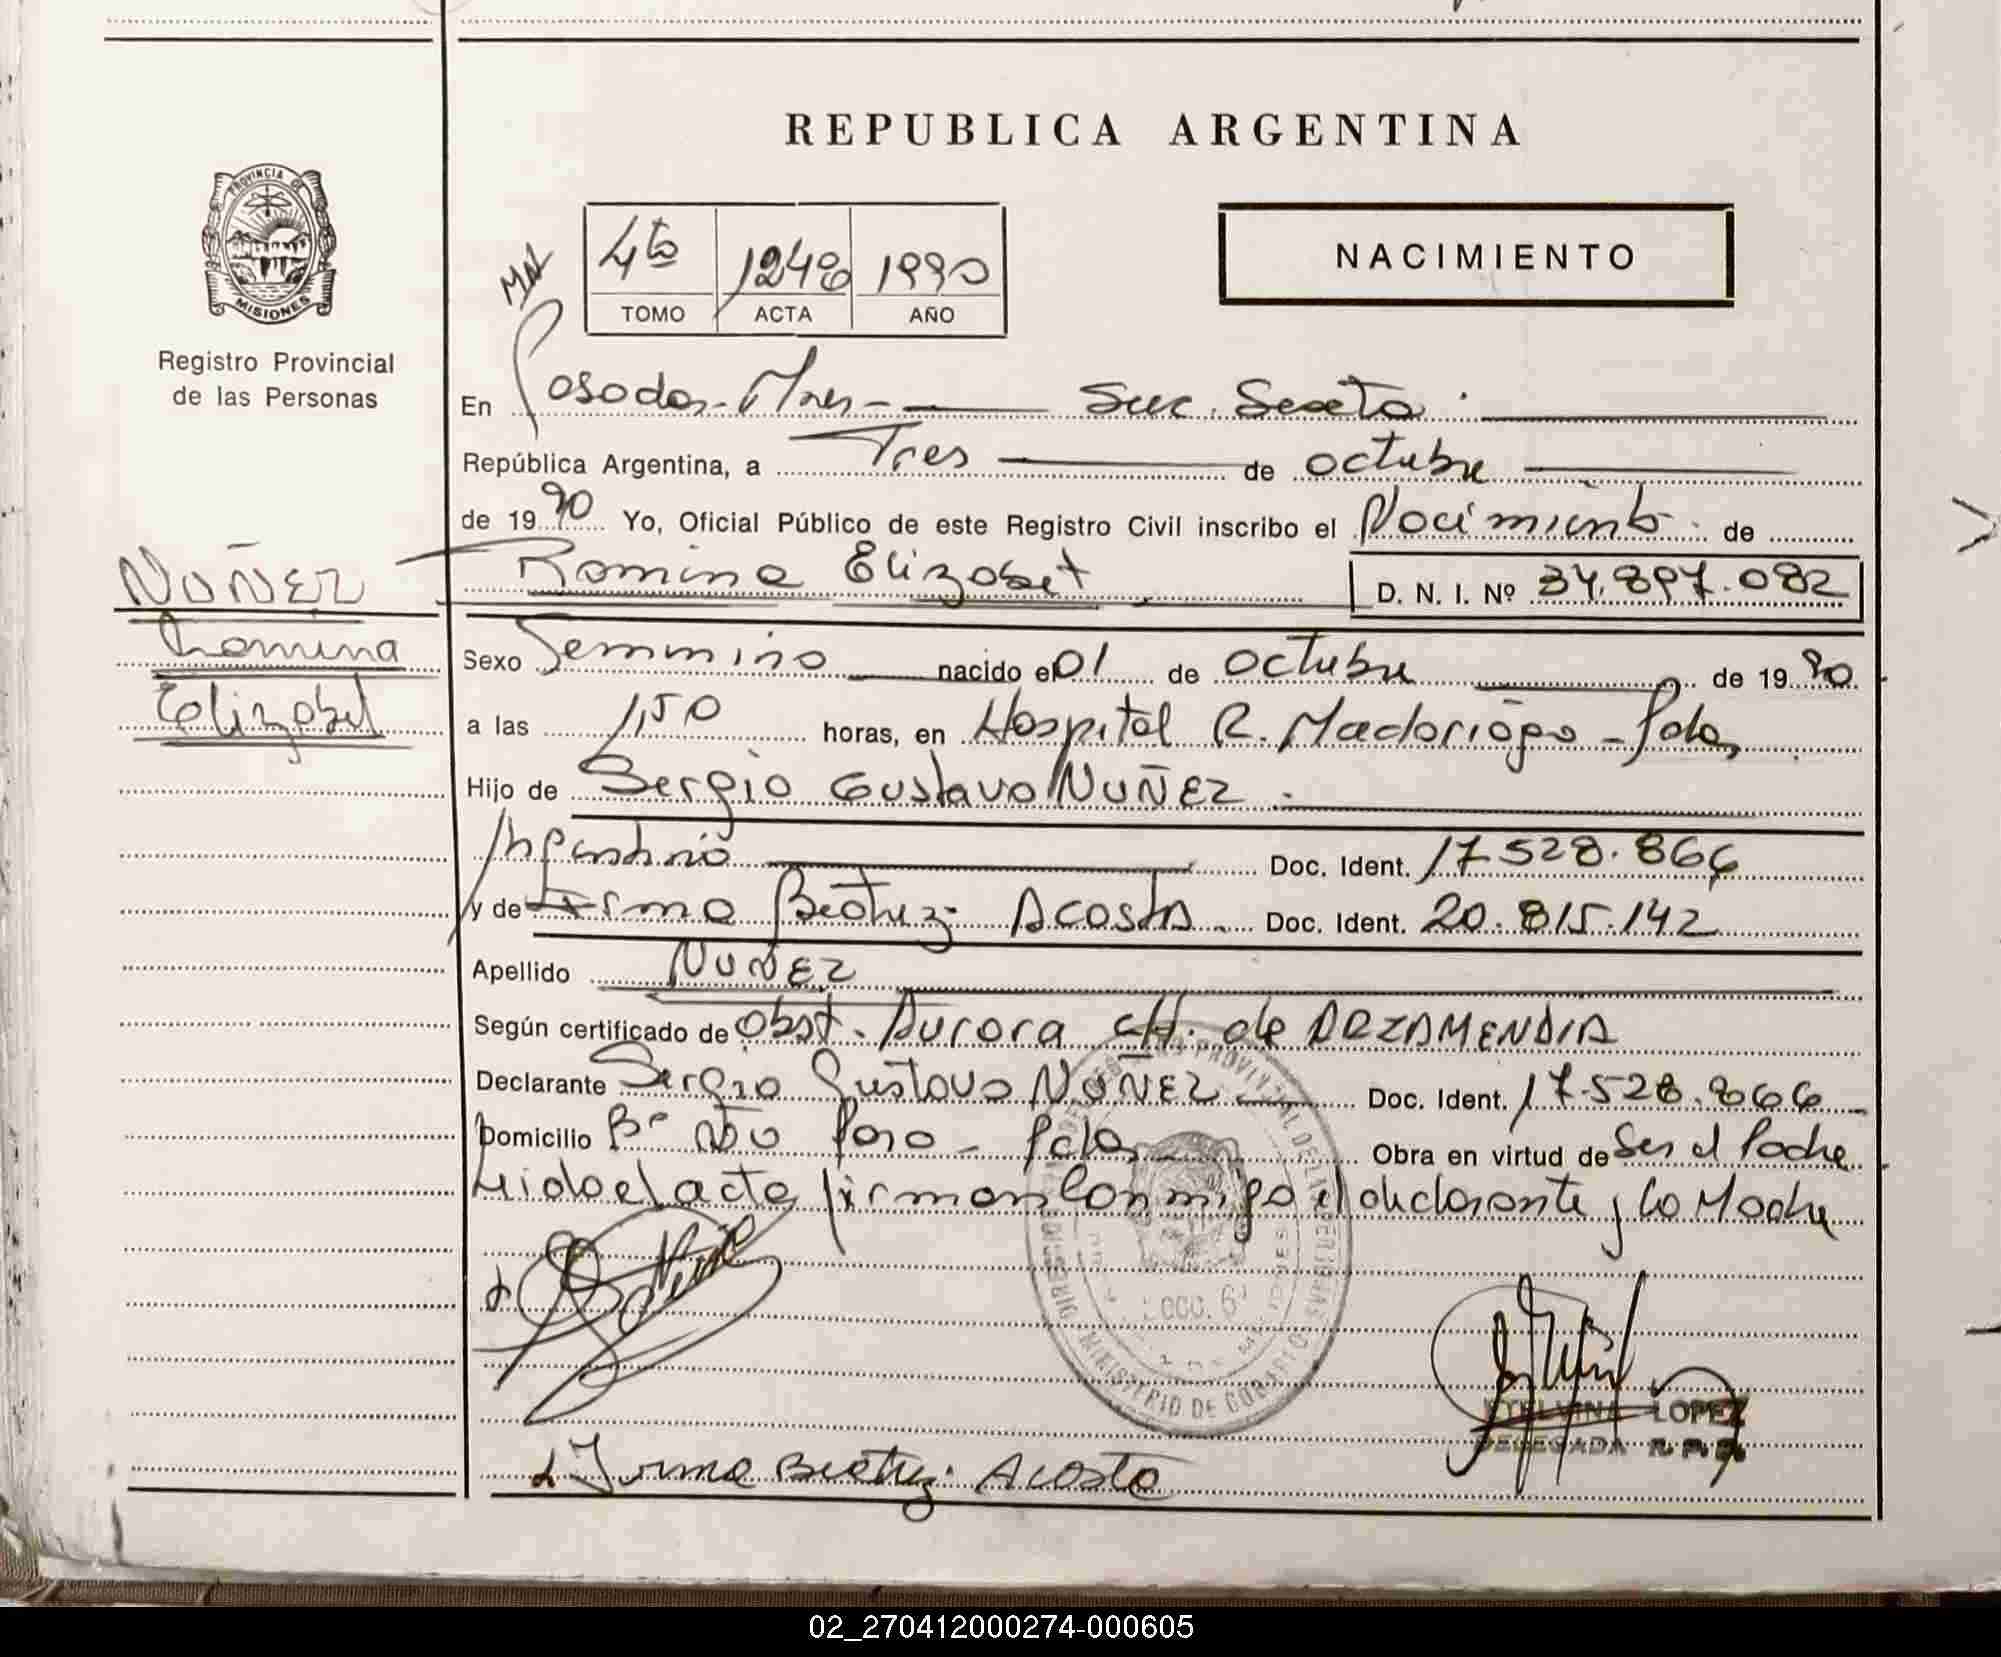 REPUBLICA ARGENTINA
PROVINCIA DE
MISIONES
Registro Provincial
de las Personas
4to 1248 1990
TOMO ACTA AÑO
NACIMIENTO
En Posadas - Mnes - Suc. Sexta
República Argentina, a Tres de octubre
de 1990 Yo, Oficial Público de este Registro Civil inscribo el Nacimiento de
Romina Elizabet D. N. I. Nº 34.897.082
NUÑEZ
Romina
Elizabet
Sexo Femenino nacido el 01 de octubre de 1990
a las 1,50 horas, en Hospital R. Madariaga - Pdas
Hijo de Sergio Gustavo NUÑEZ
Argentino Doc. Ident. 17.528.866
y de Irma Beatriz Acosta Doc. Ident. 20.815.142
Apellido NUÑEZ
Según certificado de Obst. Aurora CH. de ARZAMENDIA
Declarante Sergio Gustavo NUÑEZ Doc. Ident. 17.528.866
Domicilio Bº Ñu Pora - Pdas Obra en virtud de Ser el Padre
Leida el acta firman conmigo el declarante y la Madre
MINISTERIO DE GOBIERNO
ETELVINA LOPEZ
DELEGADA R. P. P.
Irma Beatriz Acosta
02_270412000274-000605